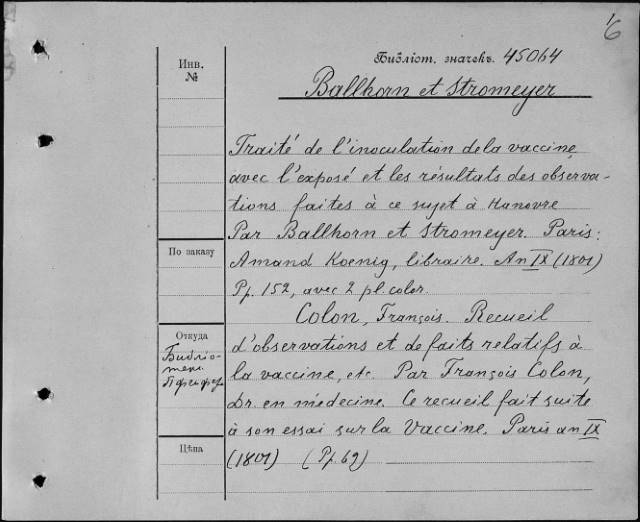 6
Библіот. значекъ. 45064
Инв.
№
Ballhorn et Stromeyer
Traité de l'inoculation de la vaccine,
avec l'exposé et les résultats des observa-
tions faites à ce sujet à Hanovre
Par Ballhorn et Stromeyer. Paris:
По заказу
Amand Koenig, libraire. An IX (1801)
Pp. 152, avec 2 pl. color.
Colon, François. Recueil
Откуда
d'observations et de faits relatifs à
Библіо-
la vaccine, etc. Par François Colon,
Dr. en médecine. Ce recueil fait suite
à son essai sur la Vaccine. Paris an IX
Цѣна
(1801) (Pp. 62)